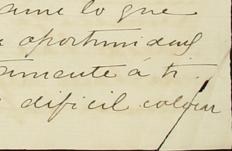 ame lo que
oportunidad
amente á ti
dificil colocar